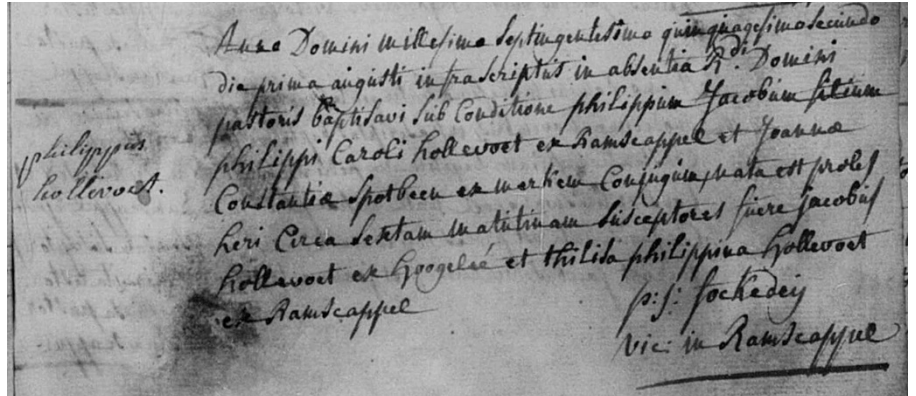 Anno Domini millesimo septingentesimo quinquagesimo secundo
die prima augusti infrascriptus in absentia R.di Domini
pastoris baptisavi sub Conditione philippum Jacobum filium
philippi Caroli hollevoet ex Ramscappel et Joannæ
Constantiæ Spotbeen ex merkem Conjugum, nata est proles
heri Circa sextam matutinam susceptores fuere Jacobus
hollevoet ex hooge­lee et philippina hollevoet
ex Ramscappel
philippus
hollevoet.
p: j: fockedeij
vic: in Ramscappel